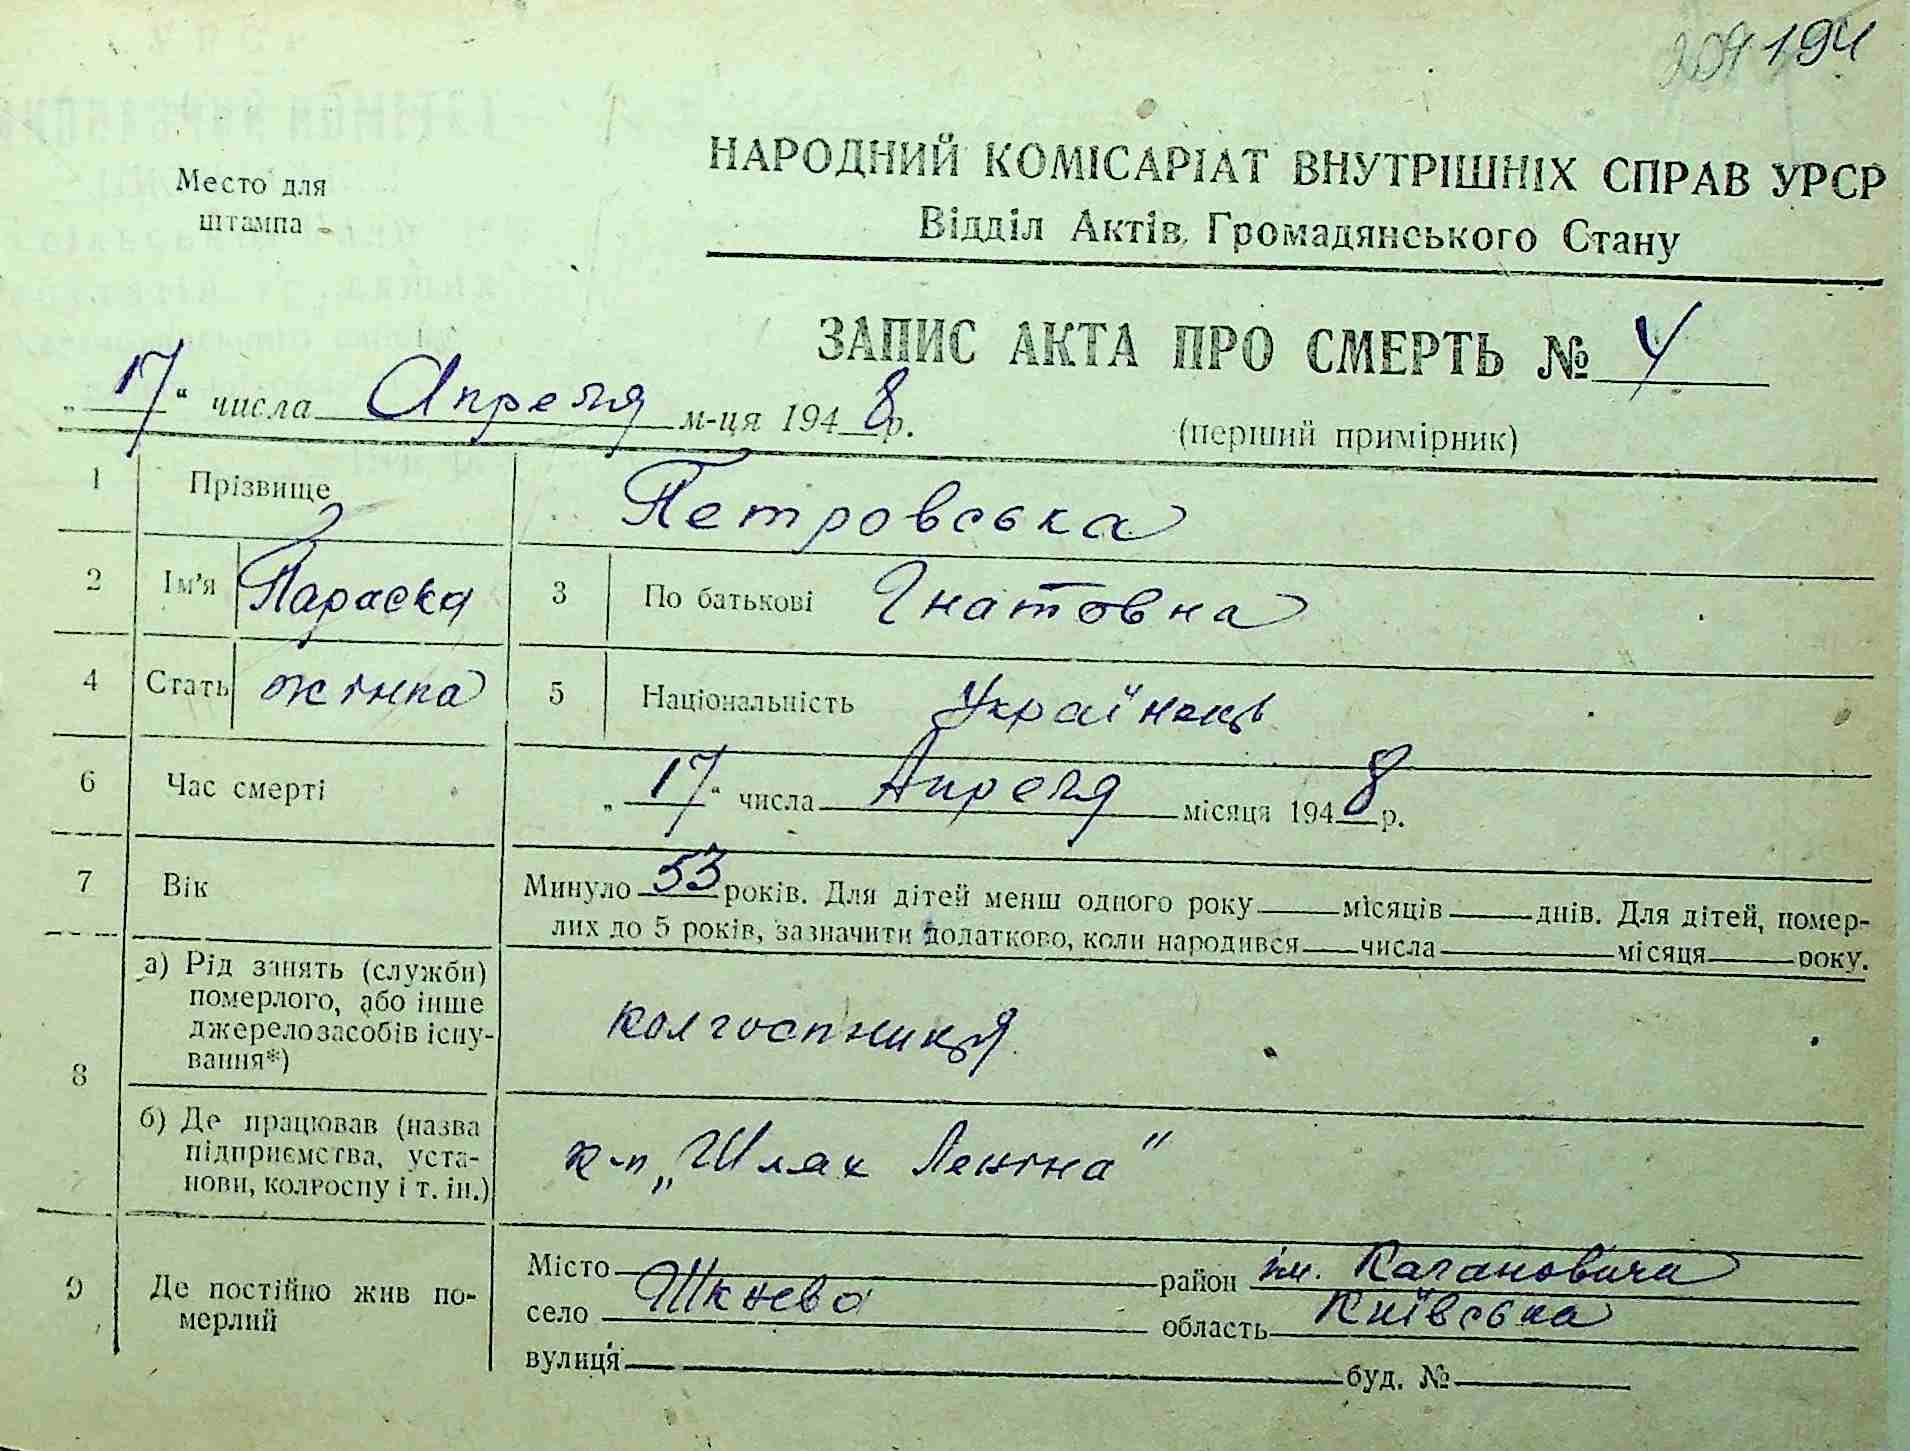 194
Место для
штампа
НАРОДНИЙ КОМІСАРІАТ ВНУТРІШНІХ СПРАВ УРСР
Відділ Актів Громадянського Стану
ЗАПИС АКТА ПРО СМЕРТЬ № 4
„17“ числа Апреля м-ця 1948 р.
(перший примірник)
1 Прізвище Петровська
2 Ім'я Параска 3 По батькові Гнатовна
4 Стать жінка 5 Національність Українець
6 Час смерті „17“ числа Апреля місяця 1948 р.
7 Вік Минуло 53 років. Для дітей менш одного року місяців днів. Для дітей, помер-
лих до 5 років, зазначити додатково, коли народився числа місяця року.
8 а) Рід занять (служби)
померлого, або інше
джерело засобів існу-
вання*)
колгоспниця
б) Де працював (назва
підприємства, уста-
нови, колгоспу і т. ін.)
к-п „Шлях Леніна"
9 Де постійно жив по-
мерлий
Місто район ім. Кагановича
село Шкнево область Київська
вулиця буд. №